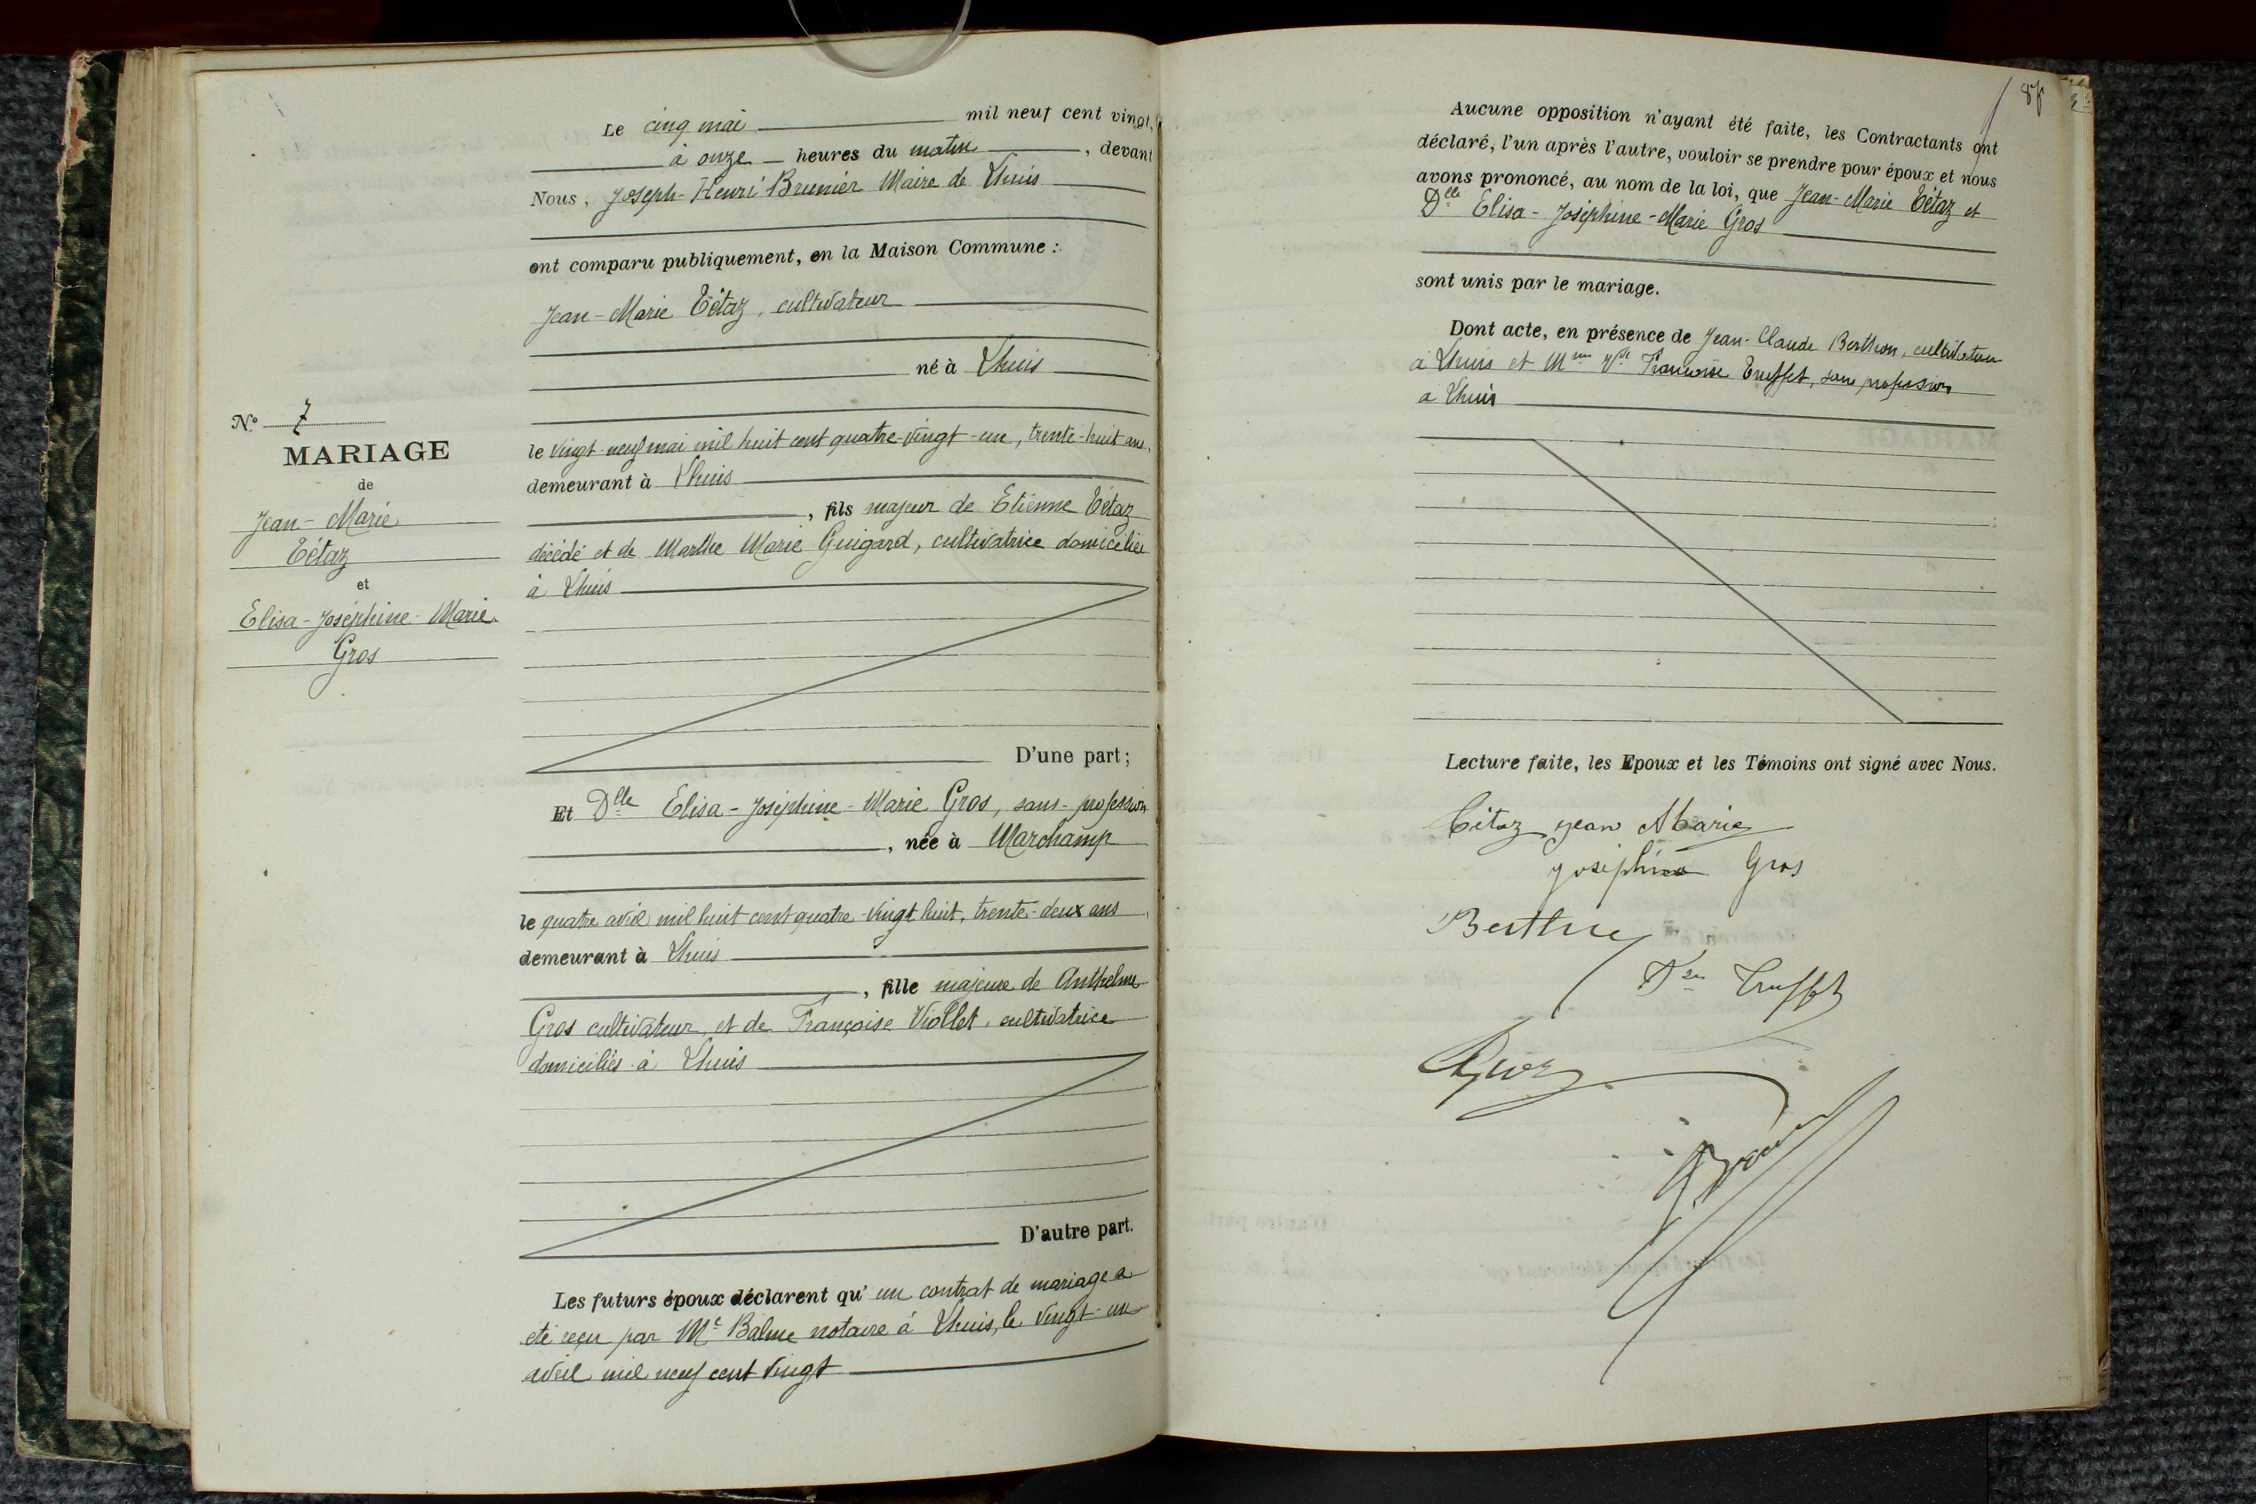 Le cinq mai mil neuf cent vingt,
à onze heures du matin, devant
Nous, Joseph-Henri Brunier Maire de Lhuis
ont comparu publiquement, en la Maison Commune :
Jean-Marie Tétaz, cultivateur
né à Lhuis
le vingt-neuf mai mil huit cent quatre-vingt-un, trente-huit ans,
demeurant à Lhuis
, fils majeur de Etienne Tétaz
décédé et de Marthe Marie Guigard, cultivatrice domiciliée
à Lhuis
D'une part ;
Et Dlle Elisa-Joséphine-Marie Gros, sans-profession
, née à Marchamp
le quatre avril mil huit cent quatre-vingt huit, trente-deux ans,
demeurant à Lhuis
, fille majeure de Anthelme
Gros cultivateur, et de Françoise Viollet, cultivatrice
domiciliés à Lhuis
D'autre part.
Les futurs époux déclarent qu' un contrat de mariage a
été reçu par Me Balme notaire à Lhuis, le vingt-un
avril mil neuf cent vingt
N° 7
MARIAGE
de
Jean-Marie
Tétaz
et
Elisa-Joséphine-Marie
Gros
Aucune opposition n'ayant été faite, les Contractants ont
déclaré, l'un après l'autre, vouloir se prendre pour époux et nous
avons prononcé, au nom de la loi, que Jean-Marie Tétaz et
Dlle Elisa-Joséphine-Marie Gros
sont unis par le mariage.
Dont acte, en présence de Jean-Claude cultivateur
à Lhuis et Mme Vve Françoise Truffet, sans profession
a Lhuis
Lecture faite, les Epoux et les Témoins ont signé avec Nous.
Tétaz Jean Marie
Joséphine Gros
Truffet